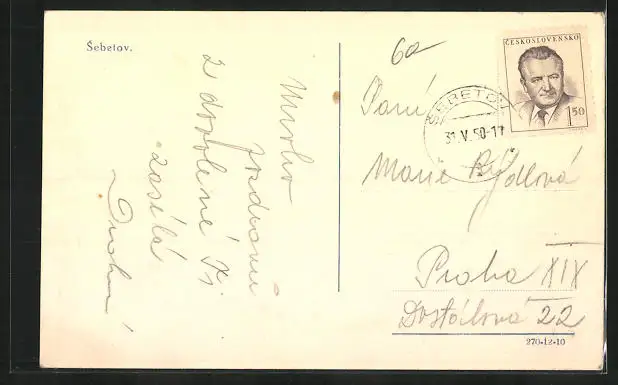 Šebetov.
Mnoho
pozdravů
z dovolené
zasílá
6a
ČESKOSLOVENSKO
1 50
ŠEBETOV
31.V.50-17
Paní
Marie Rýdlová
Praha XIX
Dostálová 22
270-12-10